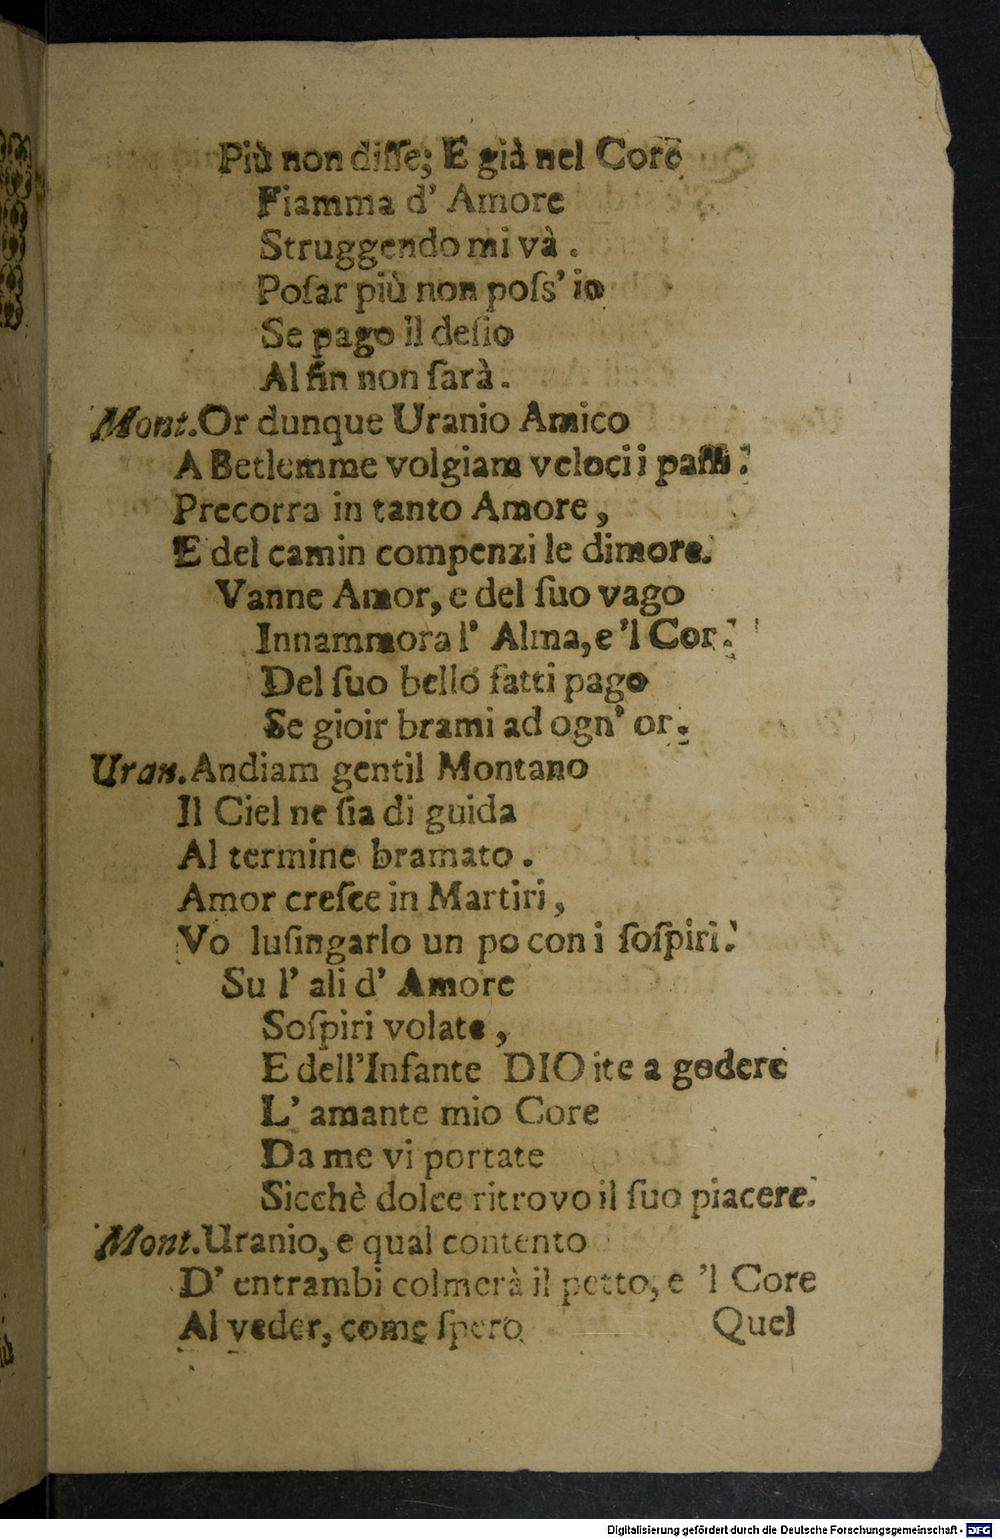 Più non diſſe; E già nel Core
Fiamma d' Amore
Struggendo mi và .
Poſar più non poſs' io
Se pago il deſio
Al fin non ſarà .
Mont. Or dunque Uranio Amico
A Betlemme volgiam veloci i paſſi.
Precorra in tanto Amore ,
E del camin compenzi le dimore.
Vanne Amor, e del ſuo vago
Innammora l' Alma, e 'l Cor.
Del ſuo bello fatti pago
Se gioir brami ad ogn' or.
Uran. Andiam gentil Montano
Il Ciel ne ſia di guida
Al termine bramato .
Amor creſce in Martiri ,
Vo luſingarlo un po con i ſoſpiri.
Su l' ali d' Amore
Soſpiri volate ,
E dell'Infante DIO ite a godere
L' amante mio Core
Da me vi portate
Sicchè dolce ritrovo il ſuo piacere.
Mont. Uranio, e qual contento
D' entrambi colmerà il petto, e 'l Core
Al veder, come ſpero
Quel
Digitalisierung gefördert durch die Deutsche Forschungsgemeinschaft - DFG